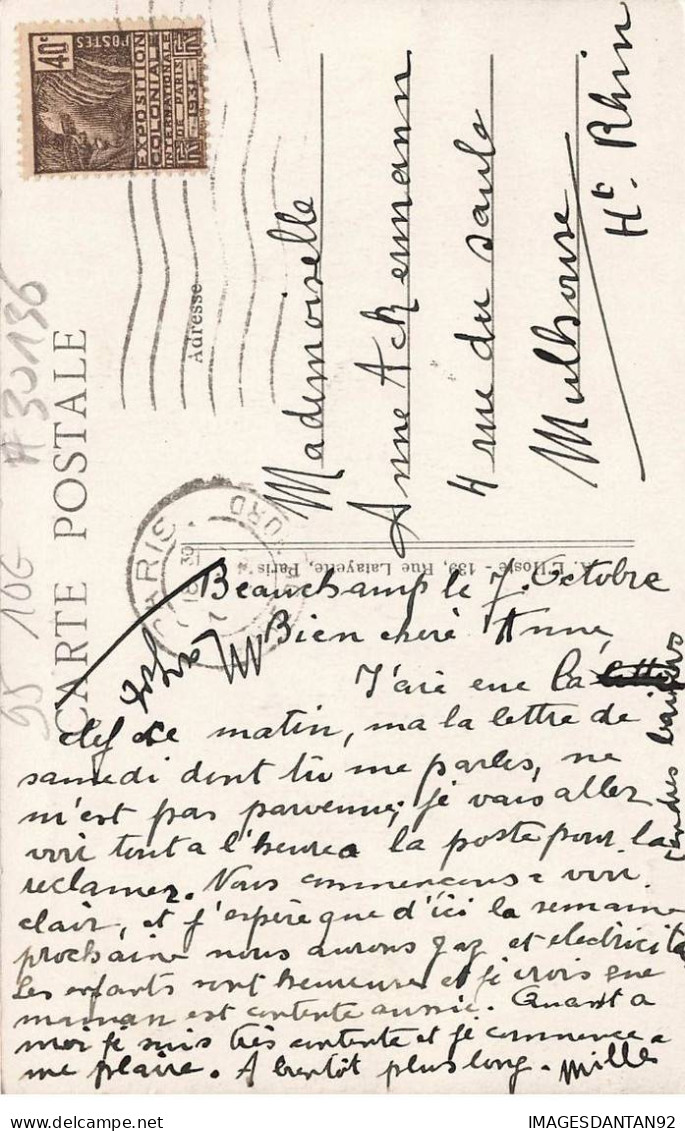 POSTES
40c
EXPOSITION
COLONIALE
INTERNATIONALE
DE PARIS
1931
#30136
95 10G
CARTE POSTALE
Adresse
Mademoiselle
Anne Ackermann
4 rue du saule
Mulhouse
Ht. Rhin
PARIS
NORD
A. L'Hoste - 139, Rue Lafayette, Paris
Beauchamp le 7. Octobre
Bien chère Anne,
J'aie eue la
clef ce matin, ma la lettre de
samedi dont tu me parles, ne
m'est pas parvenue; je vais aller
voir tout a l'heure a la poste pour la
reclamer. Nous commencons a voir
clair, et j'espère que d'ici la semaine
prochaine nous aurons gaz et electricité
Les enfants sont heureux et je crois que
maman est contente aussie. Quant a
moi je suis très contente et je commence a
me plaire. A bientôt plus long. Mille
tendres baisers
IMAGESDANTAN92